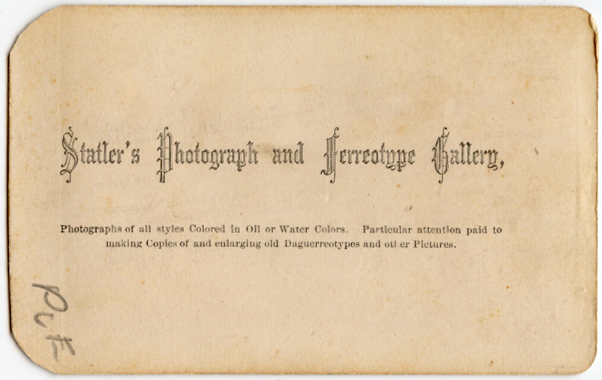 Statler's Photograph and Ferreotype Gallery,
Photographs of all styles Colored in Oil or Water Colors. Particular attention paid to
making Copies of and enlarging old Daguerreotypes and other Pictures.